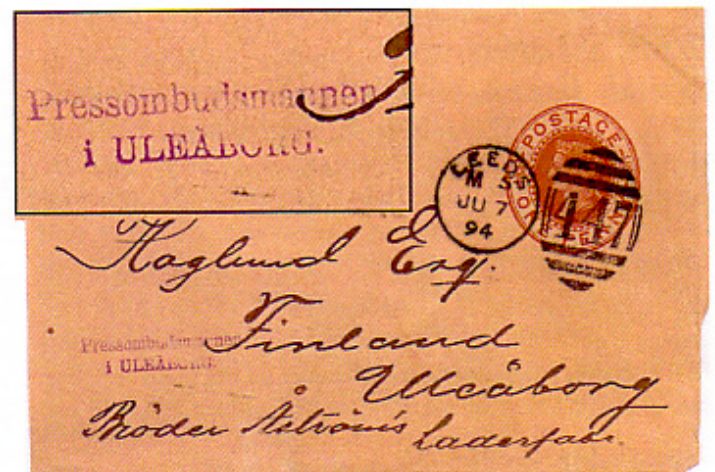 Pressombudsmannen
i ULEÅBORG.
POSTAGE
LEEDS
M 5
JU 7
94
447
Haglund Esq.
Finland
Pressombudsmannen
i ULEÅBORG.
Uleåborg
Bröder Åström's Läderfabr.